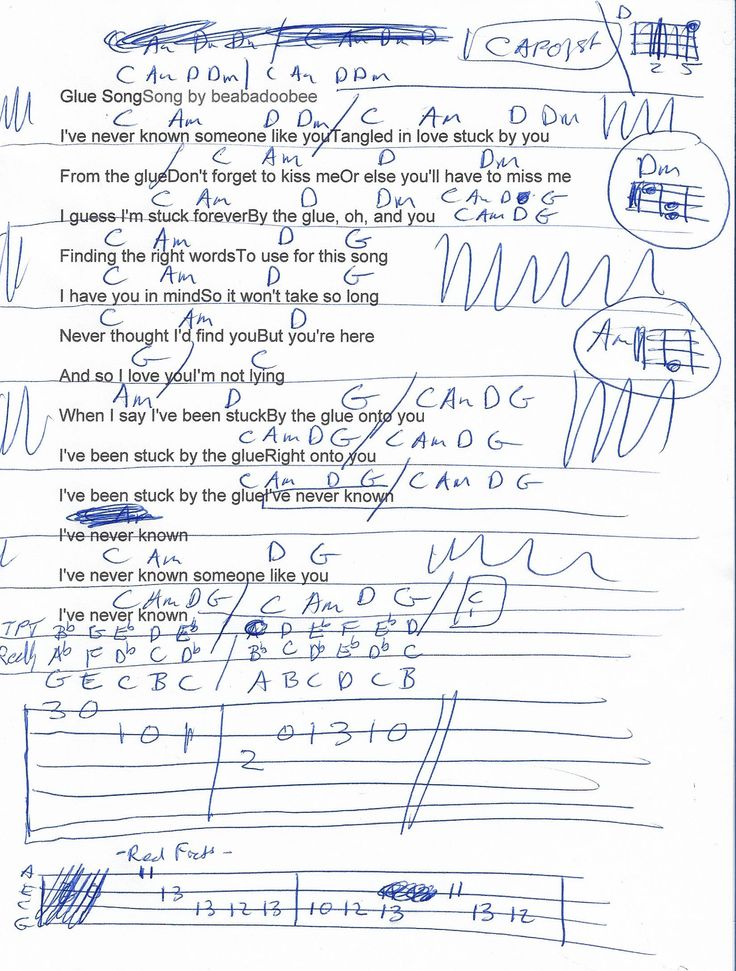 C Am Dm Dm / C Am Dm D CAPO 1st D
2 5
C Am D Dm | C Am D Dm
Glue SongSong by beabadoobee
C Am D Dm / C Am D Dm
I've never known someone like youTangled in love stuck by you
C Am D Dm
Dm
From the glueDon't forget to kiss meOr else you'll have to miss me
C Am D Dm C Am D G
I guess I'm stuck foreverBy the glue, oh, and you C Am D G
C Am D G
Finding the right wordsTo use for this song
C Am D G
I have you in mindSo it won't take so long
C Am D
Am
Never thought I'd find youBut you're here
G / C
And so I love youI'm not lying
Am D G / C Am D G
When I say I've been stuckBy the glue onto you
C Am D G / C Am D G
I've been stuck by the glueRight onto you
C Am D G / C Am D G
I've been stuck by the glueI've never known
I've never known
C Am D G
I've never known someone like you
C Am D G / C Am D G / C
I've never known
TPT Bb G Eb D Eb D Eb F Eb D
Ab F Db C Db / Bb C Db Eb Db C
G E C B C / A B C D C B
3 0
1 0 1 0 1 3 1 0
2
-Red Foots-
A 11
E 13 11
C 13 12 13 10 12 13 13 12
G